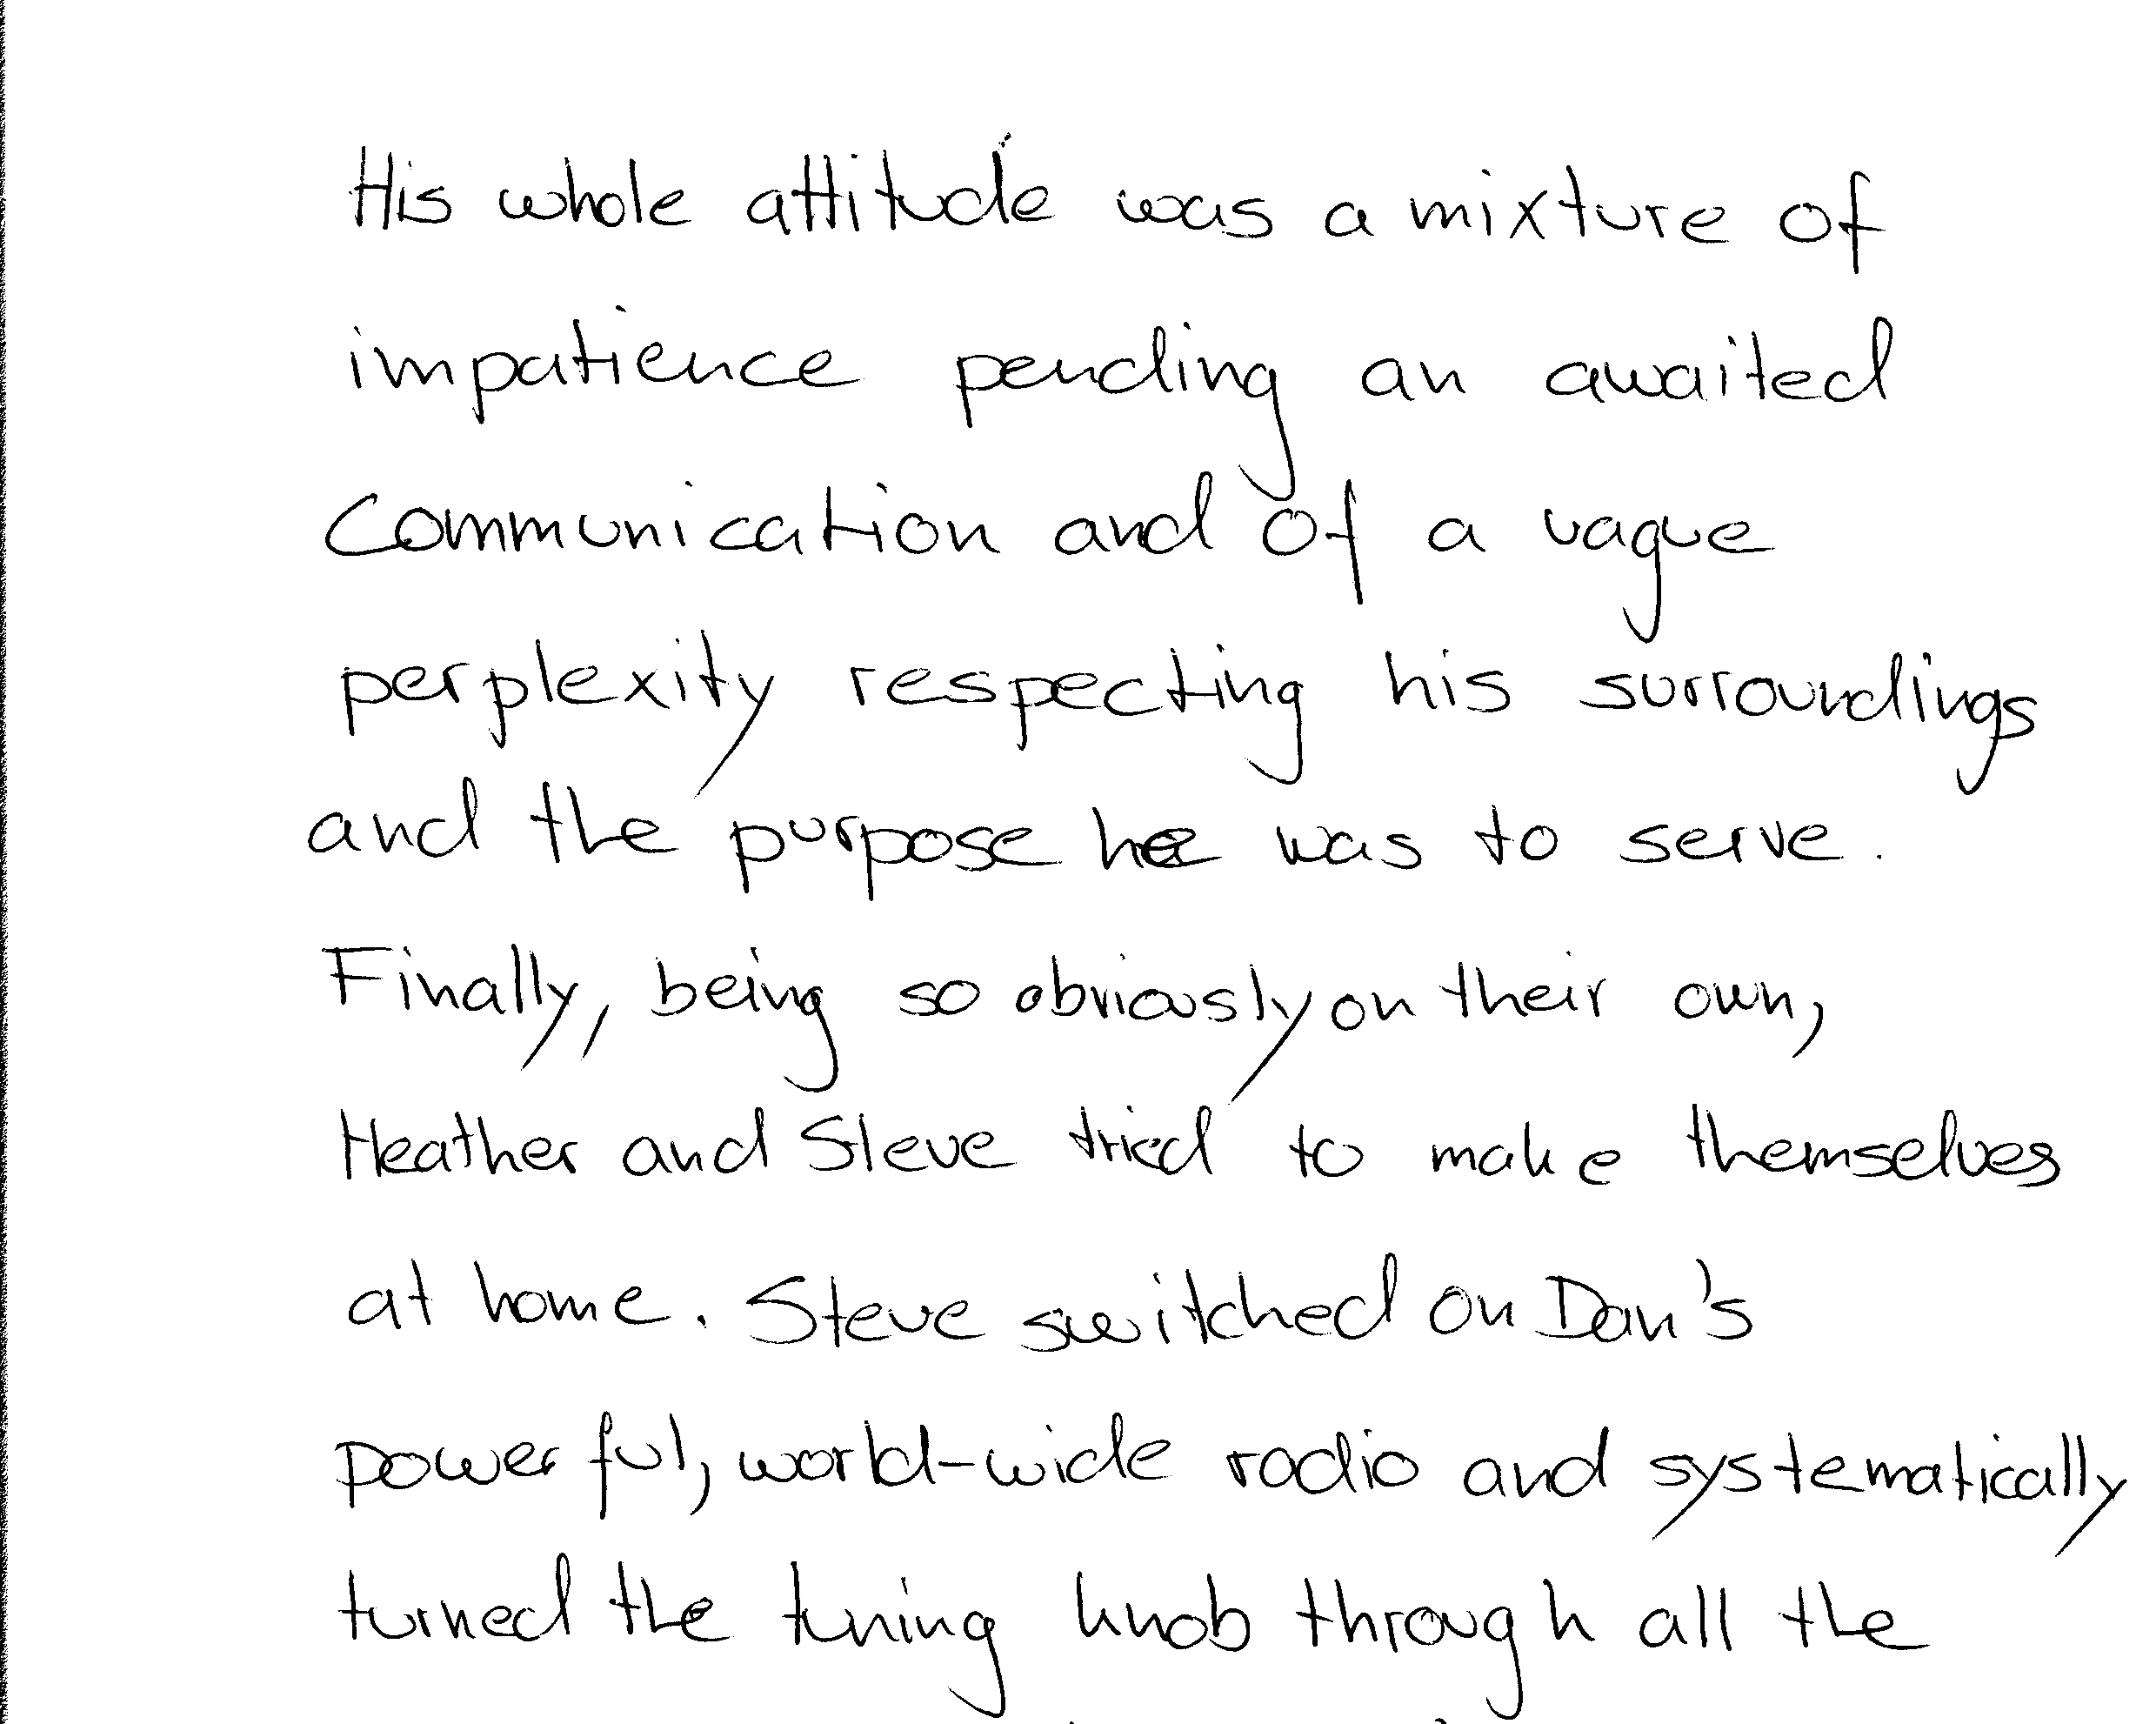 His whole attitude was a mixture of
impatience pending an awaited
communication and of a vague
perplexity respecting his surroundings
and the purpose he was to serve.
Finally, being so obviously on their own,
Heather and Steve tried to make themselves
at home. Steve switched on Dan's
powerful, world-wide radio and systematically
turned the tuning knob through all the